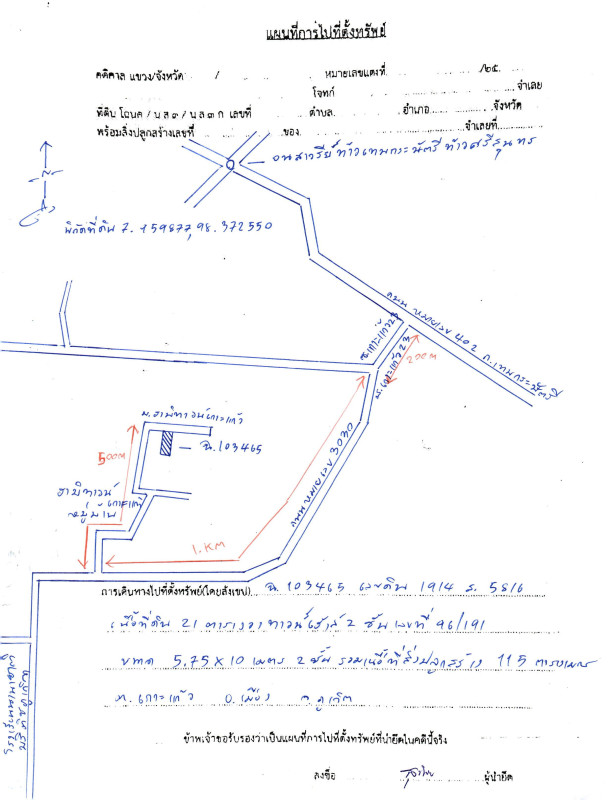 แผนที่การไปที่ตั้งทรัพย์
คดีศาล แขวง/จังหวัด / หมายเลขแดงที่ /๒๕
โจทก์ จำเลย
ที่ดิน โฉนด / น.ส.๓ / น.ส.๓ ก. เลขที่ ตำบล อำเภอ จังหวัด
พร้อมสิ่งปลูกสร้างเลขที่ ของ จำเลยที่
อนุสาวรีย์ท้าวเทพกระษัตรี ท้าวศรีสุนทร
N
พิกัดที่ดิน 7.959877,98.372550
ถนน หมายเลข 402 ถ.เทพกระษัตรี
ซ.เกาะแก้ว 23
ซ.เกาะแก้ว 23
200M
ถนน หมายเลข 3030
ม.ธานีทาวน์เกาะแก้ว
ฉ.103465
500M
ธานีทาวน์
เกาะแก้ว
1.KM
การเดินทางไปที่ตั้งทรัพย์(โดยสังเขป) ฉ.103465 เลขดิน 1914 ร. 5816
เนื้อที่ดิน 21 ตารางวา ทาวน์เฮ้าส์ 2 ชั้น เลขที่ 96/191
ขนาด 5.75 X 10 เมตร 2 ชั้น รวมเนื้อที่สิ่งปลูกสร้าง 115 ตารางเมตร
ต.เกาะแก้ว อ.เมือง จ.ภูเก็ต
ข้าพเจ้าขอรับรองว่าเป็นแผนที่การไปที่ตั้งทรัพย์ที่นำยึดในคดีนี้จริง
ลงชื่อ ผู้นำยึด